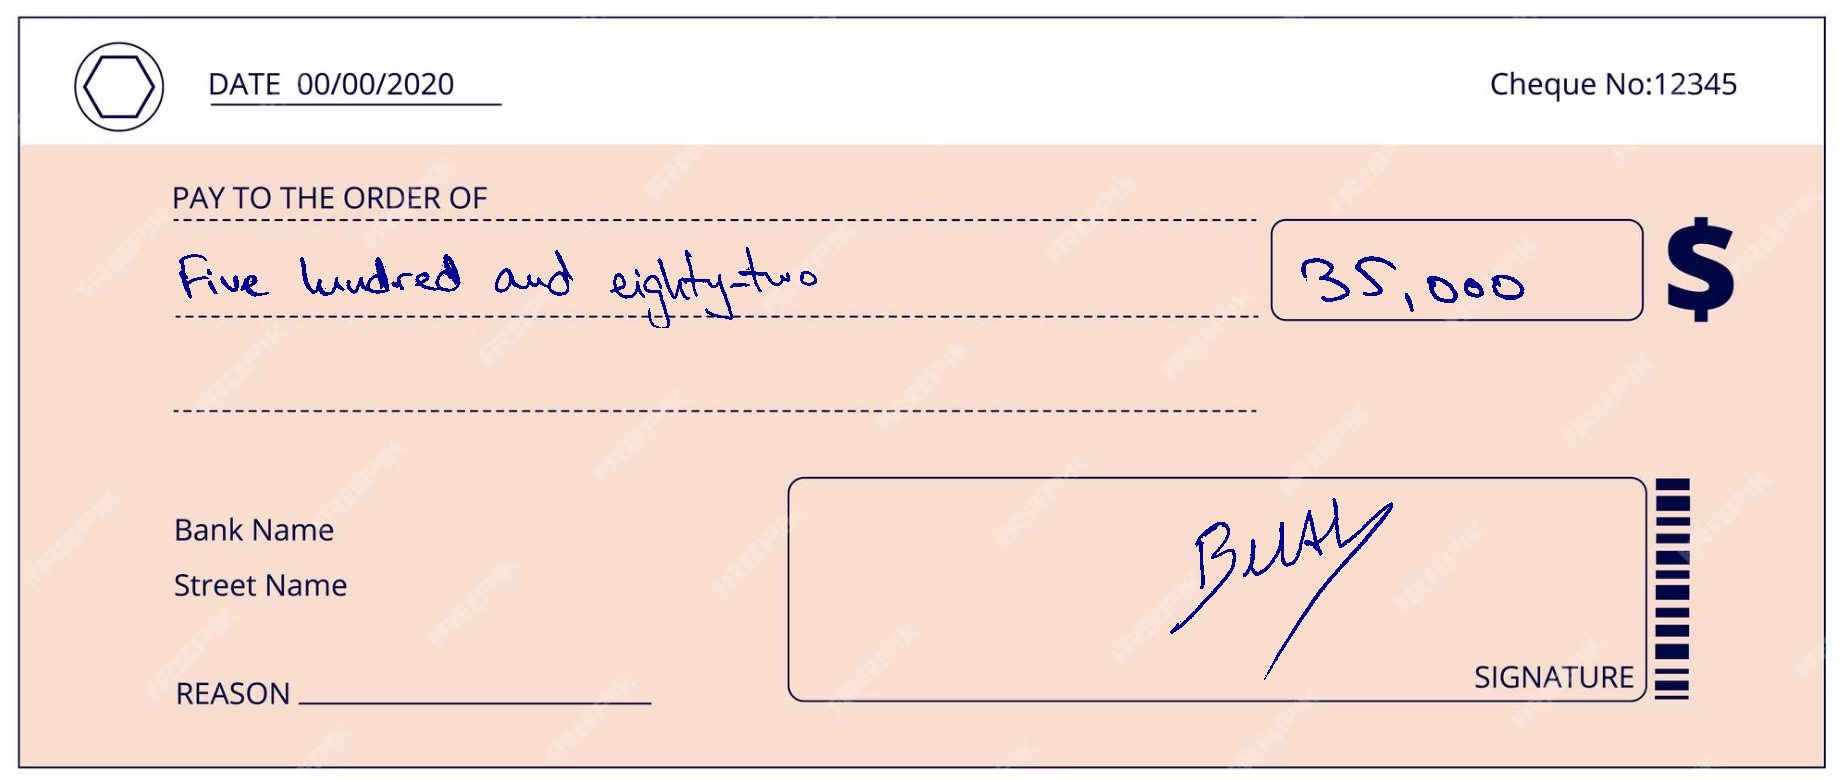 DATE 00/00/2020
Cheque No:12345
PAY TO THE ORDER OF
Five hundred and eighty-two
35,000
$
Bank Name
Street Name
Bilal
SIGNATURE
REASON